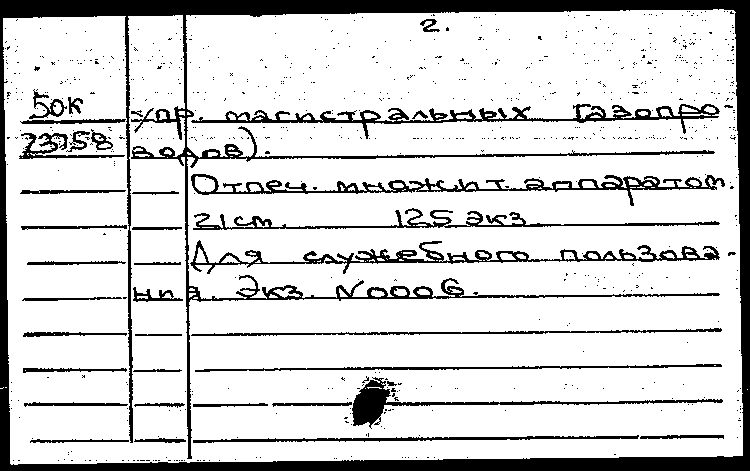 2.
50к упр. магистральных газопро-
23758 водов).
Отпеч. множит. аппаратом.
21 см. 125 экз
Для служебного пользова-
ния. Экз. №0006.